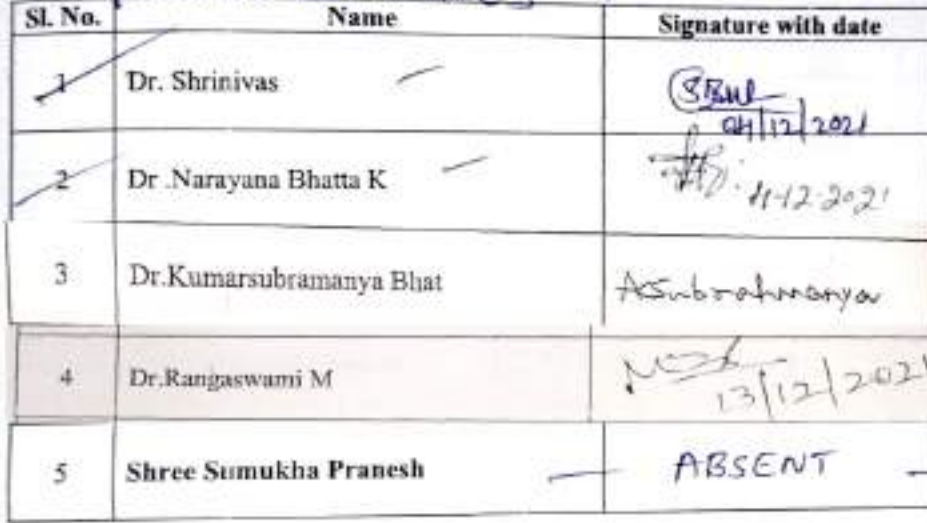 Sl. No. Name Signature with date
1 Dr. Shrinivas
04/12/2021
2 Dr .Narayana Bhatta K
4-12-2021
3 Dr.Kumarsubramanya Bhat ASubrahmanya
4 Dr.Rangaswami M
13/12/2021
5 Shree Sumukha Pranesh — ABSENT —